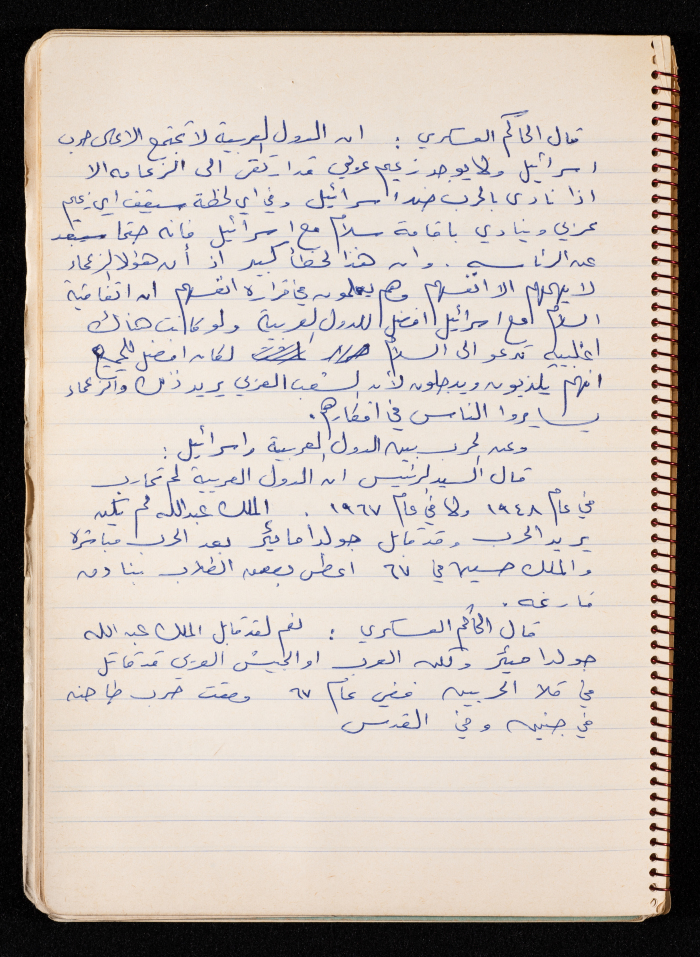 قال الحاكم العسكري : ان الدول العربية لا تجتمع الا على حرب
اسرائيل ولا يوجد زعيم عربي قد ارتقى الى الزعامه الا
اذا نادى بالحرب ضد اسرائيل وفي اي لحظة سيقف اي زعيم
عربي وينادي باقامة سلام مع اسرائيل فانه حتما سيبعد
عن الرئاسه . وان هذا لخطأ كبير اذ أن هؤلاء الزعماء
لا يهمهم الا انفسهم وهم يعلمون في قرارة انفسهم ان اتفاقية
السلام مع اسرائيل افضل للدول العربية ولو كانت هناك
اغلبيه تدعو الى السلام لكان افضل للجميع
انهم يكذبون ويدجلون لأن الشعب العربي يريد ذلك والزعماء
يسايروا الناس في افكارهم.
وعن الحرب بين الدول العربية واسرائيل :
قال السيد الرئيس ان الدول العربية لم تحارب
في عام ١٩٤٨ ولا في عام ١٩٦٧ . الملك عبدالله لم يكن
يريد الحرب وقد قابل جولدا مائير بعد الحرب مباشرة
والملك حسين في ٦٧ اعطى بعض الطلاب بنادق
فارغه .
قال الحاكم العسكري : نعم لقد قابل الملك عبد الله
جولدا مئير ولكن العرب او الجيش العربي قد قاتل
في كلا الحربين ففي عام ٦٧ وقعت حرب طاحنه
في جنين وفي القدس